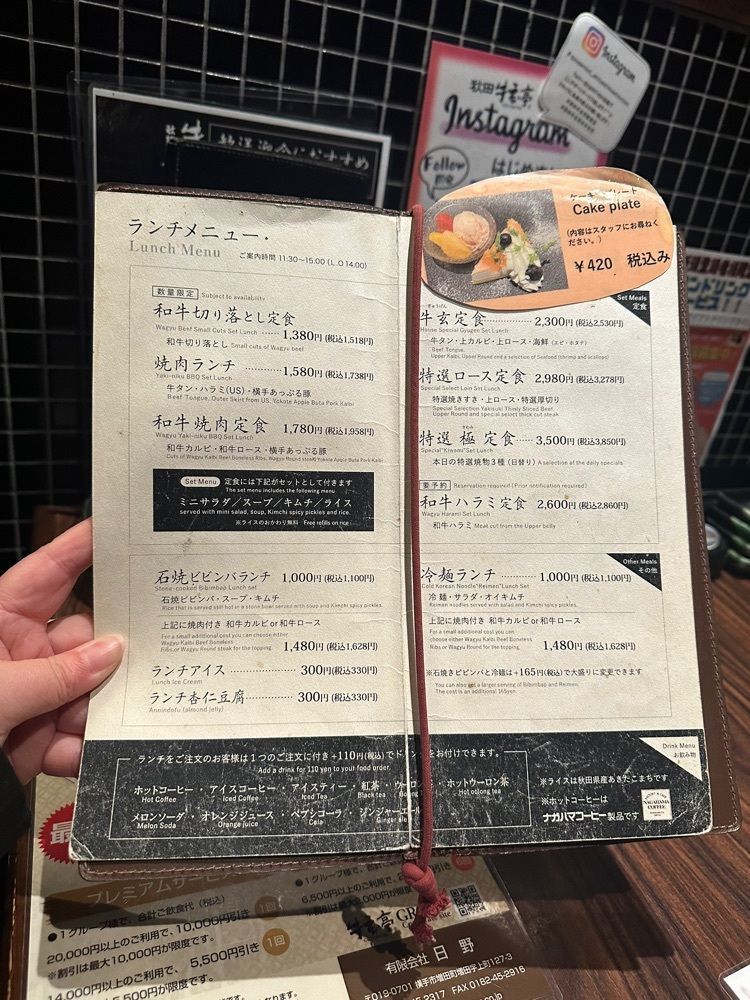 秋田 牛玄亭
Instagram
Follow me
Instagram
ランチメニュー・
Lunch Menu
ご案内時間 11:30~15:00 (L.O 14:00)
数量限定 Subject to availability
和牛切り落とし定食
Wagyu Beef Small Cuts Set Lunch ······ 1,380円 (税込1,518円)
和牛切り落とし Small cuts of Wagyu beef
焼肉ランチ
Yaki-niku BBQ Set Lunch ······ 1,580円 (税込1,738円)
牛タン・ハラミ(US)・横手あっぷる豚
Beef Tongue, Outer Skirt from US, Yokote Apple Buta Pork Kalbi
和牛焼肉定食
Wagyu Yaki-niku BBQ Set Lunch ······ 1,780円 (税込1,958円)
和牛カルビ・和牛ロース・横手あっぷる豚
Set Menu 定食には下記がセットとして付きます
The set menu includes the following menu
ミニサラダ/スープ/キムチ/ライス
served with mini salad, soup, Kimchi spicy pickles and rice.
※ライスのおかわり無料 Free refills on rice
石焼ビビンバランチ 1,000円 (税込1,100円)
Stone-cooked Bibimbap Lunch set
石焼ビビンバ・スープ・キムチ
Rice that is served still hot in a stone bowl served with soup and Kimchi spicy pickles.
上記に焼肉付き 和牛カルビ or 和牛ロース
For a small additional cost you can choose either
Wagyu Kalbi Beef Boneless
Ribs or Wagyu Round steak for the topping. 1,480円 (税込1,628円)
ランチアイス ············ 300円 (税込330円)
Lunch Ice Cream
ランチ杏仁豆腐 ············ 300円 (税込330円)
Annindofu (almond jelly)
ケーキプレート
Cake plate
(内容はスタッフにお尋ねください。)
¥420 税込み
Set Meals
定食
牛玄定食 ············ 2,300円 (税込2,530円)
House Special Gyugen Set Lunch
牛タン・上カルビ・上ロース・海鮮 (エビ・ホタテ)
Beef Tongue,
Upper Kalbi, Upper Round and a selection of Seafood (shrimp and scallops)
特選ロース定食 2,980円 (税込3,278円)
Special Select Loin Set Lunch
特選焼きすき・上ロース・特選厚切り
Special Selection Yakisuki Thinly Sliced Beef,
Upper Round and special select thick cut steak
特選 極 定食 ······ 3,500円 (税込3,850円)
Special "Kiwami" Set Lunch
本日の特選焼物3種 (日替り) A selection of the daily specials
要予約 Reservation required (Prior notification required)
和牛ハラミ定食 ······ 2,600円 (税込2,860円)
Wagyu Harami Set Lunch
和牛ハラミ Meat cut from the Upper belly
Other Meals
その他
冷麺ランチ ············ 1,000円 (税込1,100円)
Cold Korean Noodle "Reimen" Lunch Set
冷麺・サラダ・オイキムチ
Reimen noodles served with salad and Kimchi spicy pickles.
上記に焼肉付き 和牛カルビ or 和牛ロース
For a small additional cost you can
choose either Wagyu Kalbi Beef Boneless
Ribs, or Wagyu Round for the topping. 1,480円 (税込1,628円)
※石焼きビビンバと冷麺は+165円(税込)で大盛りに変更できます
You can also get a larger serving of Bibimbap and Reimen.
The cost is an additional 165yen.
Drink Menu
お飲み物
ランチをご注文のお客様は1つのご注文に付き+110円(税込)でドリンクをお付けできます。
Add a drink for 110 yen to your food order.
ホットコーヒー・アイスコーヒー・アイスティー・紅茶・ウーロン・ホットウーロン茶
Hot Coffee Iced Coffee Iced Tea Black tea Hot oolong tea
メロンソーダ・オレンジジュース・ペプシコーラ・ジンジャーエール
Melon Soda Orange juice Cola Ginger ale
※ライスは秋田県産あきたこまちです
※ホットコーヒーは
ナガハマコーヒー製品です
NAGAHAMA COFFEE
プレミアムサービス
●1グループ様で、合計ご飲食代(税込)
20,000円以上のご利用で、10,000円引き 1回
※割引は最大10,000円が限度です。
14,000円以上のご利用で、5,500円引き 1回
有限会社 日野
〒019-0701 横手市増田町増田字上町127-3
FAX 0182-45-2916